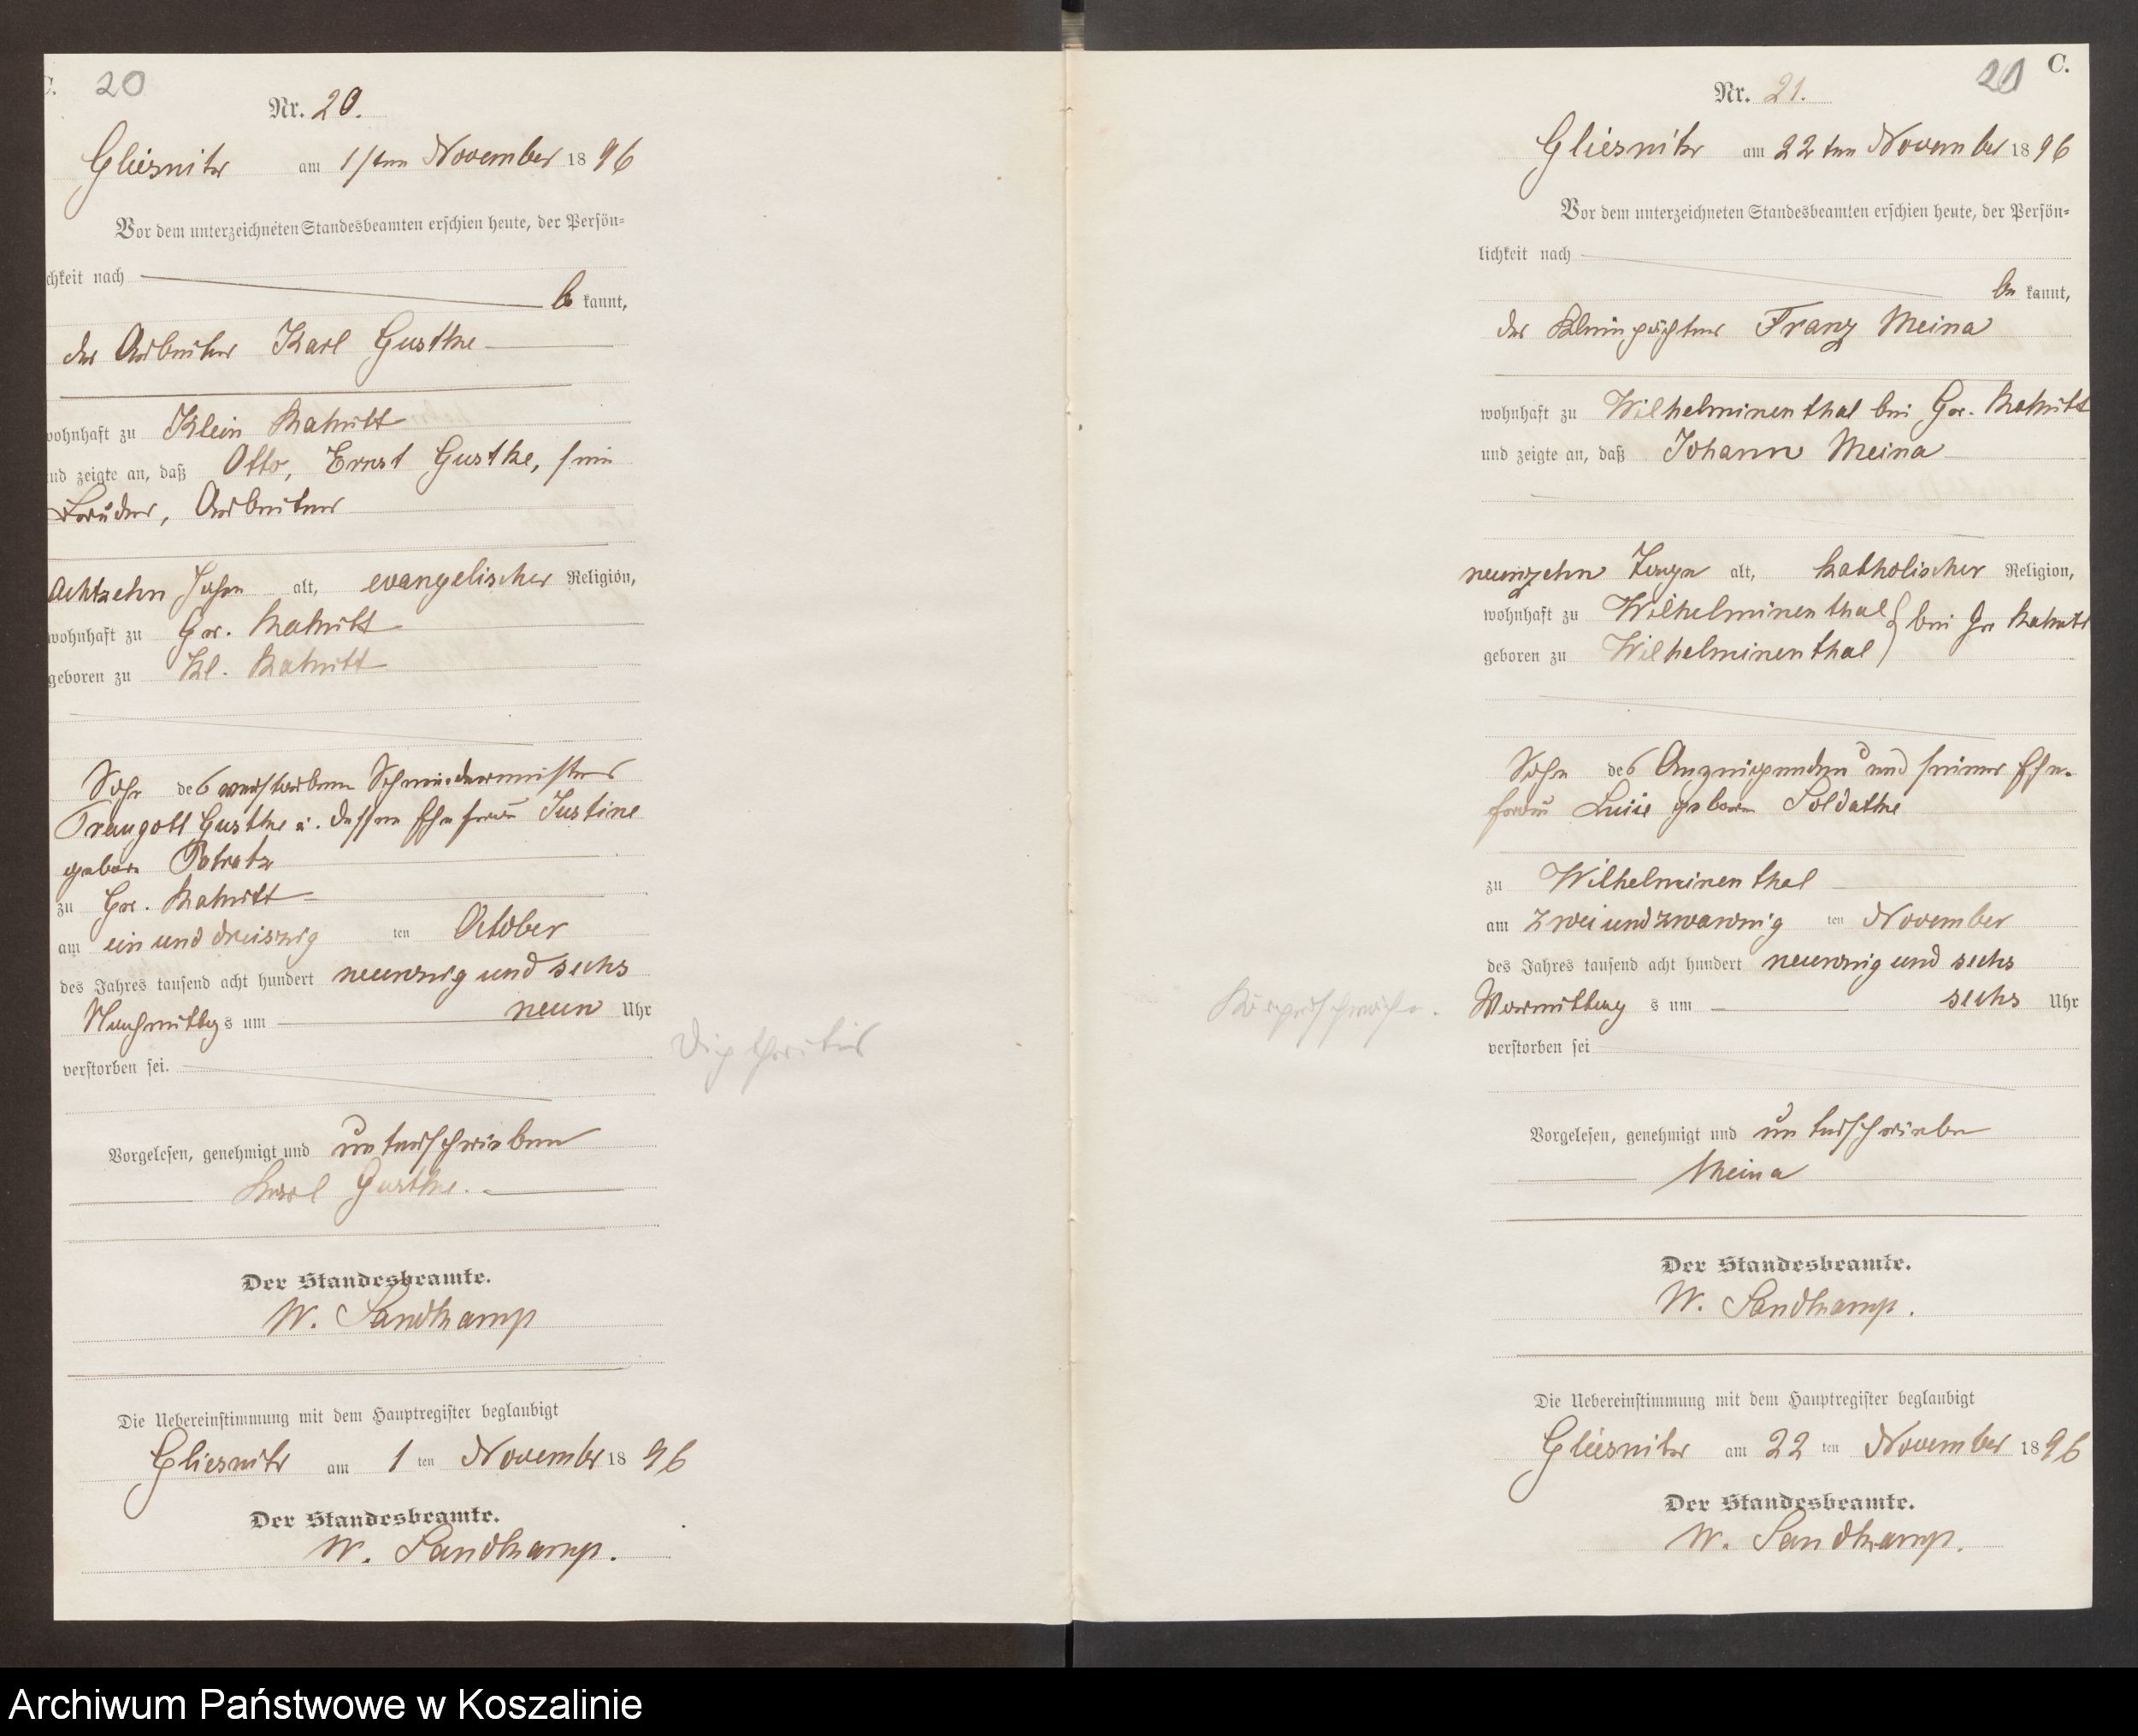 C. 20
Nr. 20.
Gliesnitz am 1sten November 1896
Vor dem unterzeichneten Standesbeamten erschien heute, der Persön-
chkeit nach
be kannt,
der Arbeiter Karl Gustke
wohnhaft zu Klein Rakitt
und zeigte an, daß Otto, Ernst Gustke, sein
Bruder, Arbeiter
Achtzehn Jahre alt, evangelischer Religion,
wohnhaft zu Gr. Rakitt
geboren zu Kl. Rakitt
Sohn des verstorbenen Schmiedemeisters
Traugott Gustke u. dessen Ehefrau Justine
geborn Potratz
zu Gr. Rakitt
am ein und dreiszig ten October
des Jahres tausend acht hundert neunzig und sechs
Nachmittags um neun Uhr
verstorben sei.
Diphtheritis
Vorgelesen, genehmigt und unterschrieben
Karl Gustke.
Der Standesbeamte.
W. Sandkamp
Die Uebereinstimmung mit dem Hauptregister beglaubigt
Gliesnitz am 1 ten November 1896
Der Standesbeamte.
W. Sandkamp.
21 C.
Nr. 21.
Gliesnitz am 22ten November 1896
Vor dem unterzeichneten Standesbeamten erschien heute, der Persön-
lichkeit nach
be kannt,
der Kleinpächter Franz Meina
wohnhaft zu Wilhelminenthal bei Gr. Rakitt
und zeigte an, daß Johann Meina
neunzehn Tage alt, katholischer Religion,
wohnhaft zu Wilhelminenthal } bei Gr Rakitt
geboren zu Wilhelminenthal
Sohn des Anzeigenden und seiner Ehe-
frau Luise geboren Soldatke
zu Wilhelminenthal
am zweiundzwanzig ten November
des Jahres tausend acht hundert neunzig und sechs
Körperschwäche. Vormittag s um sechs Uhr
verstorben sei
Vorgelesen, genehmigt und unterschrieben
Meina
Der Standesbeamte.
W. Sandkamp.
Die Uebereinstimmung mit dem Hauptregister beglaubigt
Gliesnitz am 22 ten November 1896
Der Standesbeamte.
W. Sandkamp.
Archiwum Państwowe w Koszalinie